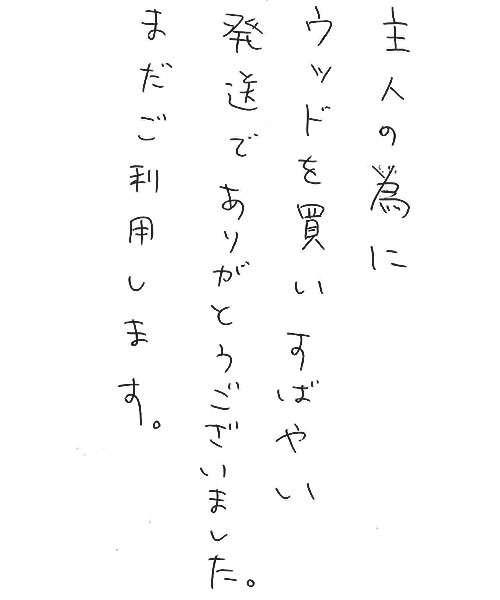 主人の為に
ウッドを買いすばやい
発送でありがとうございました。
まだご利用します。